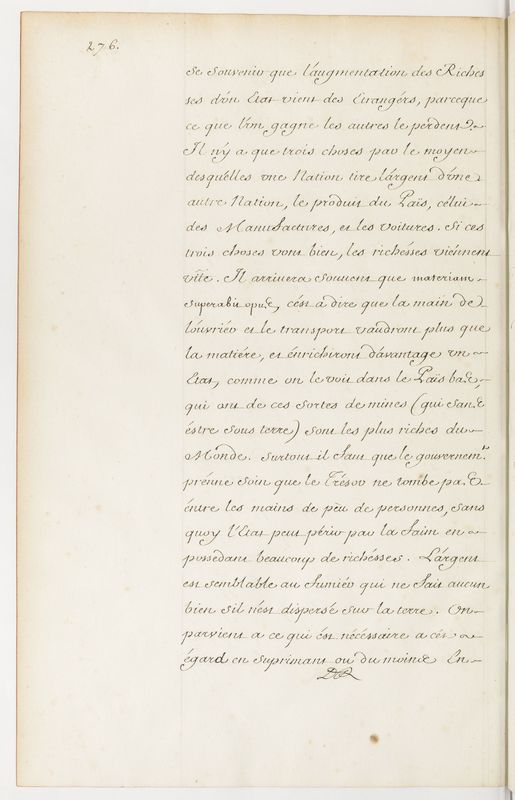 276.
se souvenir que l'áugmentation des Riches
ses d'ún Etat vient des Etrangérs, parceque
ce que l'ón gagne les autres le perdent.
Il n'ÿ a que trois choses par le moyen
desquélles vne Nation tire l'árgent d'úne
autre Nation, le produit du Païs, célui
des Manufactures, et les voitures. Si ces
trois choses vont bien, les richésses viénnent
vîte. Il arriuera souuent que materiam
superabit opus, c'ést a dire que la main de
l'oúvriér et le transport vaudront plus que
la matiére, et énrichiront d'ávantage vn
Etat, comme on le voit dans le Païs bas,
qui ont de ces sortes de mines (qui sans
éstre sous terre) sont les plus riches du
Monde. Surtout il faut que le gouvernem.t
prénne soin que le Trésor ne tombe pas
éntre les mains de peu de personnes, sans
quoy l'Etat peut périr par la faim en
possedant beaucoup de richésses. L'árgent
est semblable au fumiér qui ne fait aucun
bien s'il n'ést dispersé sur la terre. On
parvient a ce qui ést nécéssaire a cét
égard en suprimant ou du moins En